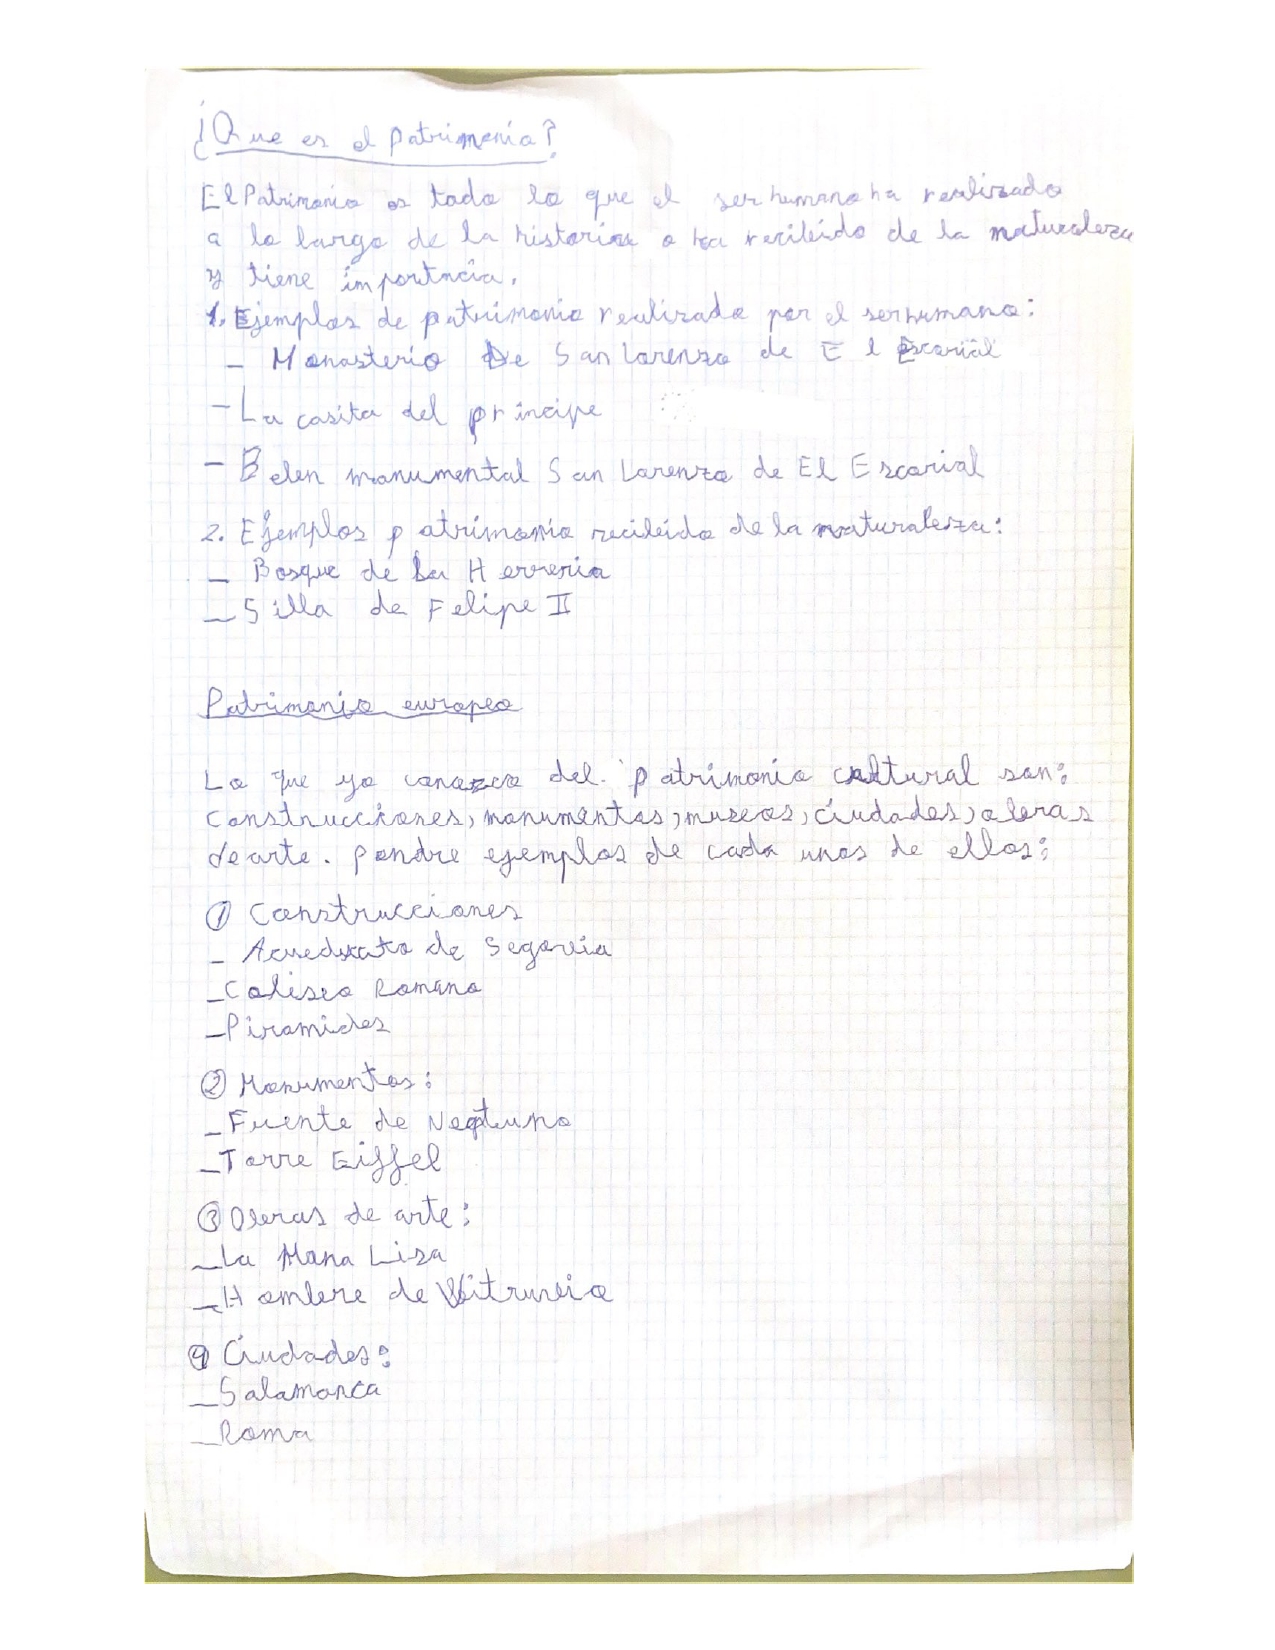 ¿Que es el patrimonio?
El Patrimonio es todo lo que el ser humano ha realizado
a lo largo de la historia o ha recibido de la naturaleza
y tiene importncia.
1. Ejemplos de patrimonio realizado por el ser humano:
- Monasterio De San Lorenzo de El Escorial
- La casita del principe
- Belen monumental San Lorenzo de El Escorial
2. Ejemplos patrimonio recibido de la naturaleza:
- Bosque de La Herreria
- Silla de Felipe II
Patrimonio europeo
Lo que yo conozco del patrimonio cultural son:
construcciones, monumentos, museos, ciudades, obras
de arte. pondre ejemplos de cada unos de ellos:
① Construcciones
- Acueducto de Segovia
- Coliseo Romano
- Piramides
② Monumentos:
- Fuente de Neptuno
- Torre Eiffel
③ Obras de arte:
- La Mona Lisa
- Hombre de Vitruvio
④ Ciudades:
- Salamanca
- Roma